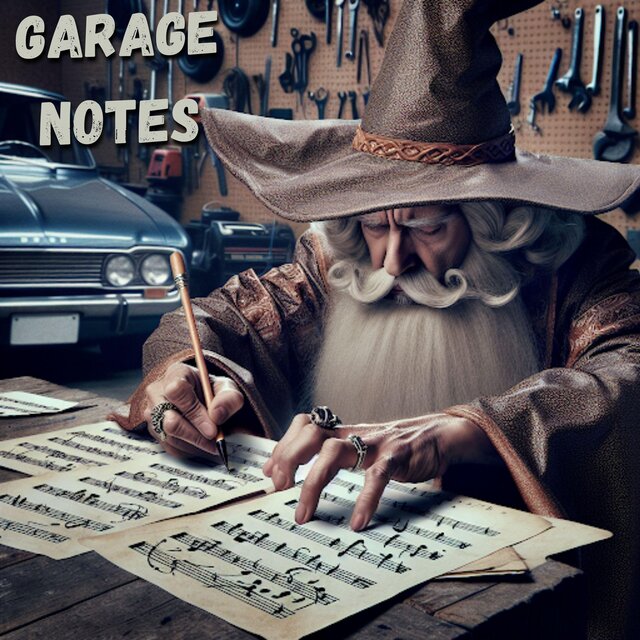 GARAGE
NOTES